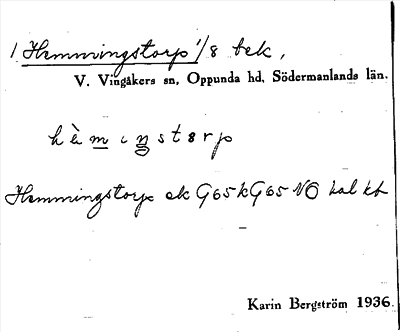 1 Hemmingstorp 1/8 bek,
V. Vingåkers sn, Oppunda hd, Södermanlands län.
hèmıŋstɵrp
Hemmingstorp ek G65 k G65 NO hal kb
Karin Bergström 1936.